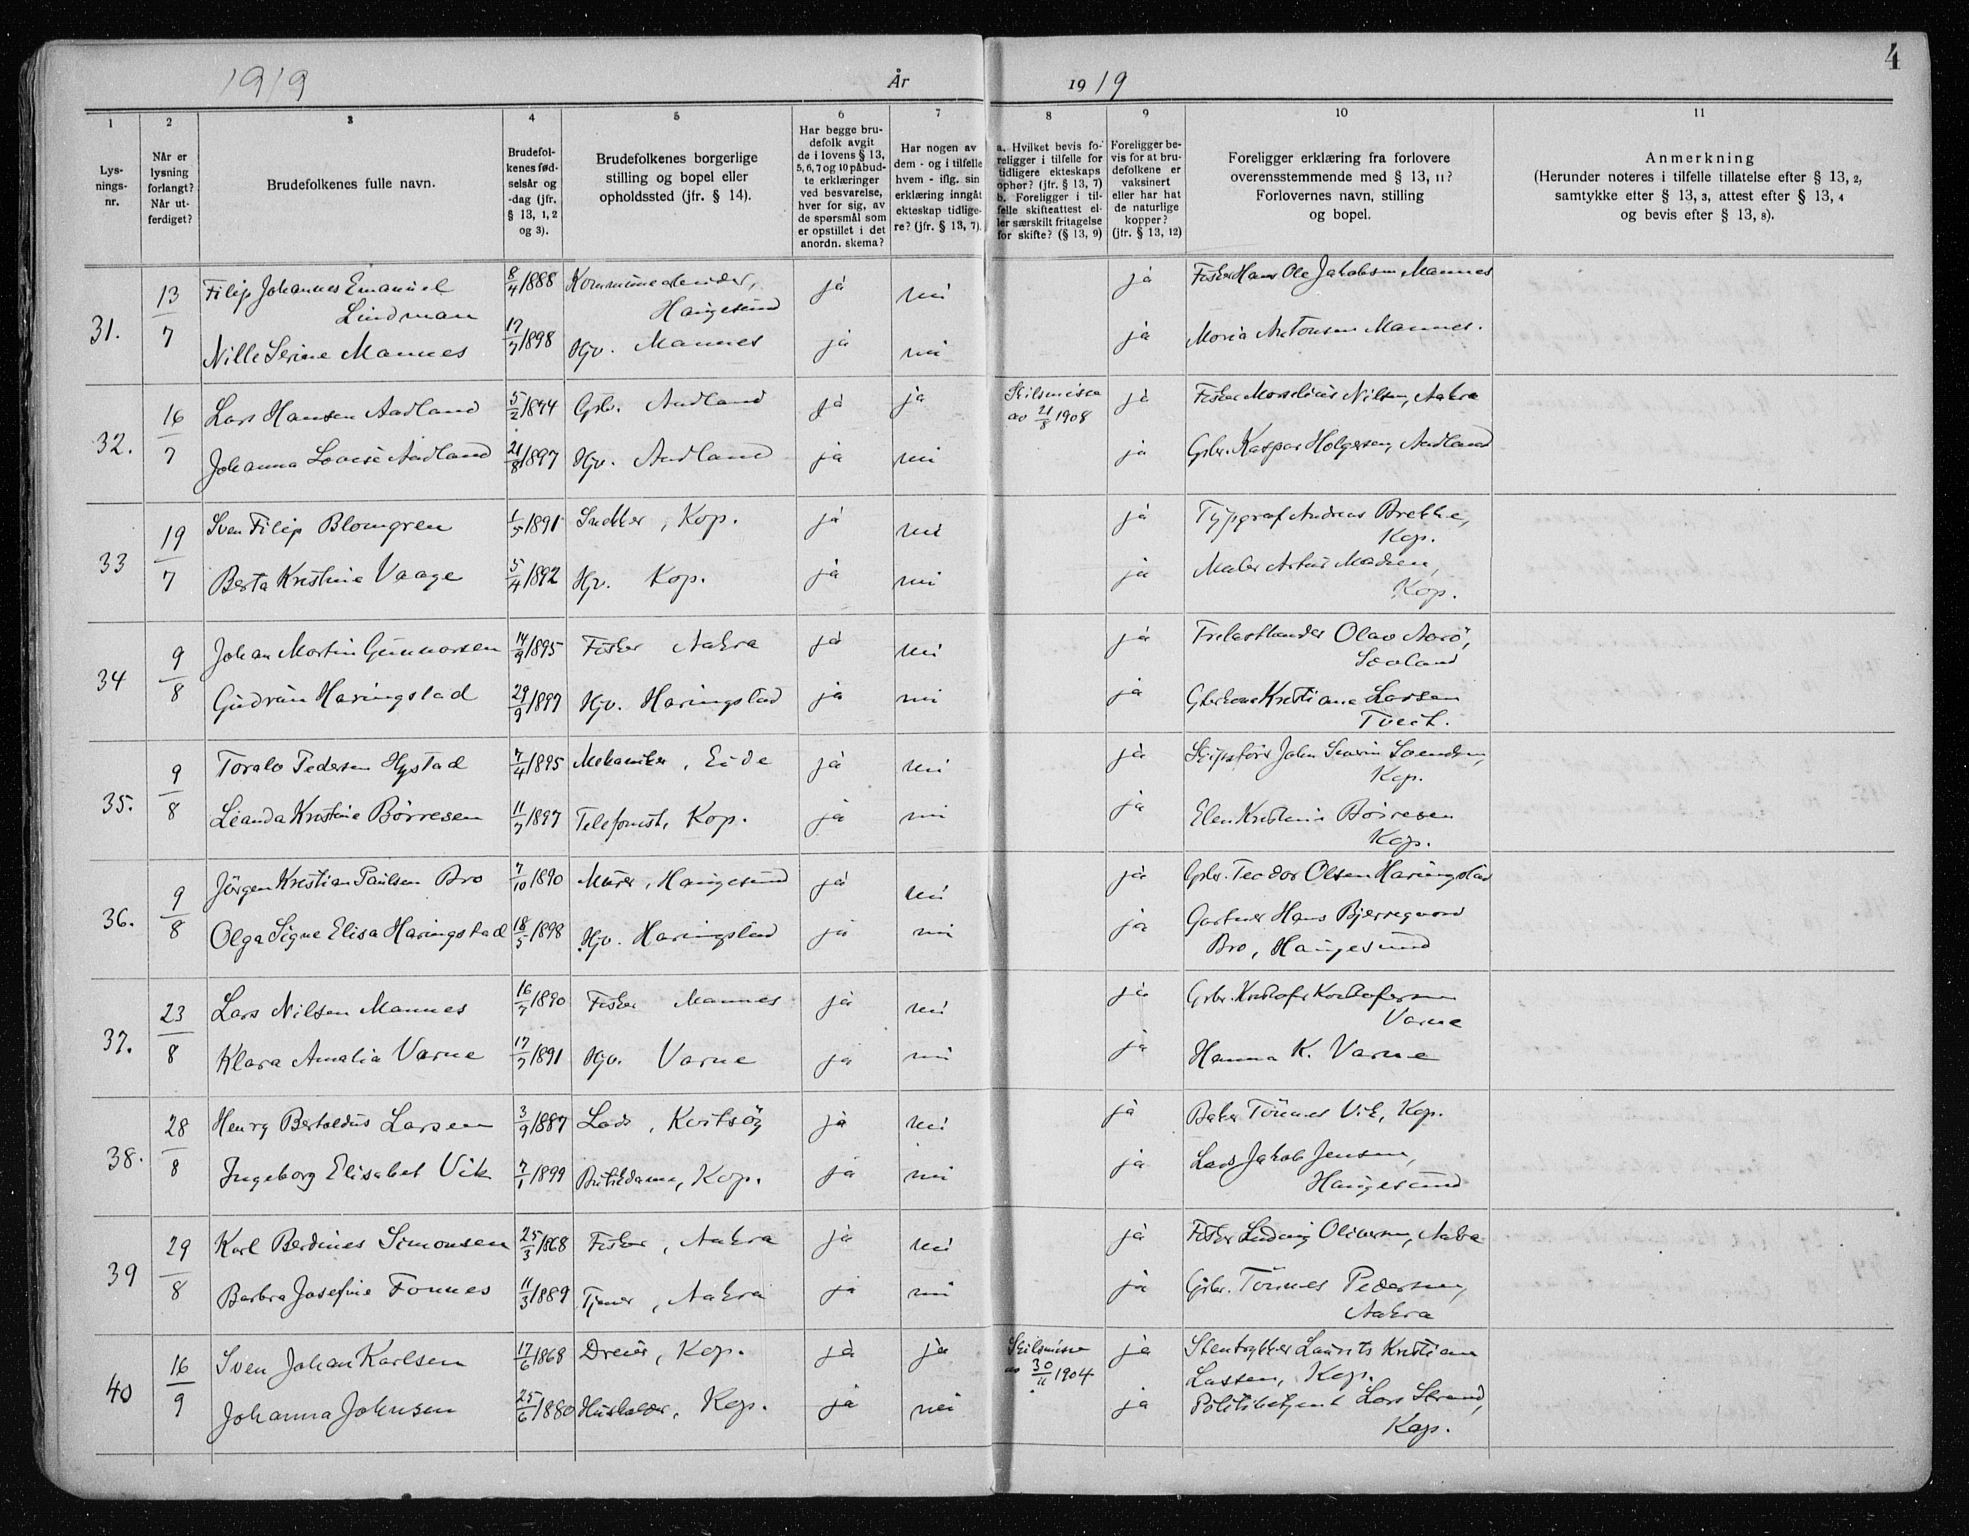 4
1919 År 1919
1 2 3 4 5 6 7 8 9 10 11
Lys-
nings-
nr.
Når er
lysning
forlangt?
Når ut-
ferdiget?
Brudefolkenes fulle navn.
Brudefol-
kenes fød-
selsår og
-dag (jfr.
§ 13, 1, 2
og 3).
Brudefolkenes borgerlige
stilling og bopel eller
opholdssted (jfr. § 14).
Har begge bru-
defolk avgit
de i lovens § 13,
5, 6, 7 og 10 påbud-
te erklæringer
ved besvarelse,
hver for sig, av
de spørsmål som
er opstillet i det
anordn. skema?
Har nogen av
dem - og i tilfelle
hvem - iflg. sin
erklæring inngåt
ekteskap tidlige-
re? (jfr. § 13, 7).
a. Hvilket bevis fo-
religger i tilfelle for
tidligere ekteskaps
ophør? (jfr. § 13, 7)
b. Foreligger i til-
felle skifteattest el-
ler særskilt fritagelse
for skifte? (§ 13, 9)
Foreligger be-
vis for at bru-
defolkene er
vaksinert
eller har hat
de naturlige
kopper?
(jfr. § 13, 12)
Foreligger erklæring fra forlovere
overensstemmende med § 13, 11?
Forlovernes navn, stilling
og bopel.
Anmerkning
(Herunder noteres i tilfelle tillatelse efter § 13, 2,
samtykke efter § 13, 3, attest efter § 13, 4
og bevis efter § 13, 8).
31. 13/7 Filip Johannes Emanuel 8/4 1888 ja nei ja Fisker Hans Ole Jakobsen Mannes
Lindman Haugesund
Nille Serine Mannes 17/7 1898 Hjv. Mannes ja nei ja Maria Antonsen Mannes.
32. 16/7 Lars Hansen Aadland 5/2 1874 Gbr. Aadland ja ja Skilsmisse ja Fisker Nilsen, Aakra
av 21/8 1908
Johanna Lovise Aadland 21/8 1897 Hjv. Aadland ja nei ja Gbr. Kaspar Holgersen, Aadland
33 19/7 Sven Filip Blomgren 1/5 1891 Snekker, Kop. ja nei ja Typograf Andreas Brekke,
Kop.
Berta Kristine Vaage 5/4 1892 Hjv. Kop. ja nei ja Maler Artur Madsen,
Kop.
34 9/8 Johan Martin Gunnarsen 14/9 1895 Fisker Aakra ja nei ja Trelasthandler Olav Aarö,
Gudrun Haringstad 29/9 1897 Hjv. Haringstad ja nei ja Kristiane Larsen
Tveit.
35. 9/8 Toralv Pedersen Hystad 7/4 1895 Mekaniker, Eide ja nei ja Skipsförer John Severin Svendsen,
Kop.
Leanda Kristine Börresen 11/7 1897 Telefonist, Kop. ja nei ja Elen Kristine Börresen
Kop.
36. 9/8 Jörgen Kristian Paulsen Bro 7/10 1890 Murer, Haugesund ja nei ja Gbr. Teodor Olsen Haringstad
Olga Signe Elisa Haringstad 18/5 1898 Hjv. Haringstad ja nei ja Gartner Hans Bjerregaard
Bro, Haugesund
37. 23/8 Lars Nilsen Mannes 16/7 1890 Fisker Mannes ja nei ja Gbr. Kristofer Kristofersen
Varne
Klara Amalia Varne 17/7 1891 Hjv. Varne ja nei ja Hanna K. Varne
38. 28/8 Henry Bertoldus Larsen 3/9 1887 Lods, Kvitsöy ja nei ja Baker Tönnes Vik, Kop.
Ingeborg Elisabet Vik 7/1 1899 Butikdame, Kop. ja nei ja Lods Jakob Jensen,
Haugesund
39 29/8 Karl Berdines Simonsen 25/3 1868 Fisker, Aakra ja nei ja Fisker Ludvig Oliversen, Aakra
Barbra Josefine Fonnes 11/3 1889 Tjener, Aakra ja nei ja Gbr. Tönnes Pedersen,
Aakra
40 16/9 Sven Johan Karlsen 17/6 1868 Dreier, Kop. ja ja Skilsmisse ja Stentrykker Laurits Kristian
av 30/11 1904 Lassen, Kop.
Johanna Johnsen 25/6 1880 Husholder, Kop. ja nei ja Politibetjent Lars Strand,
Kop.